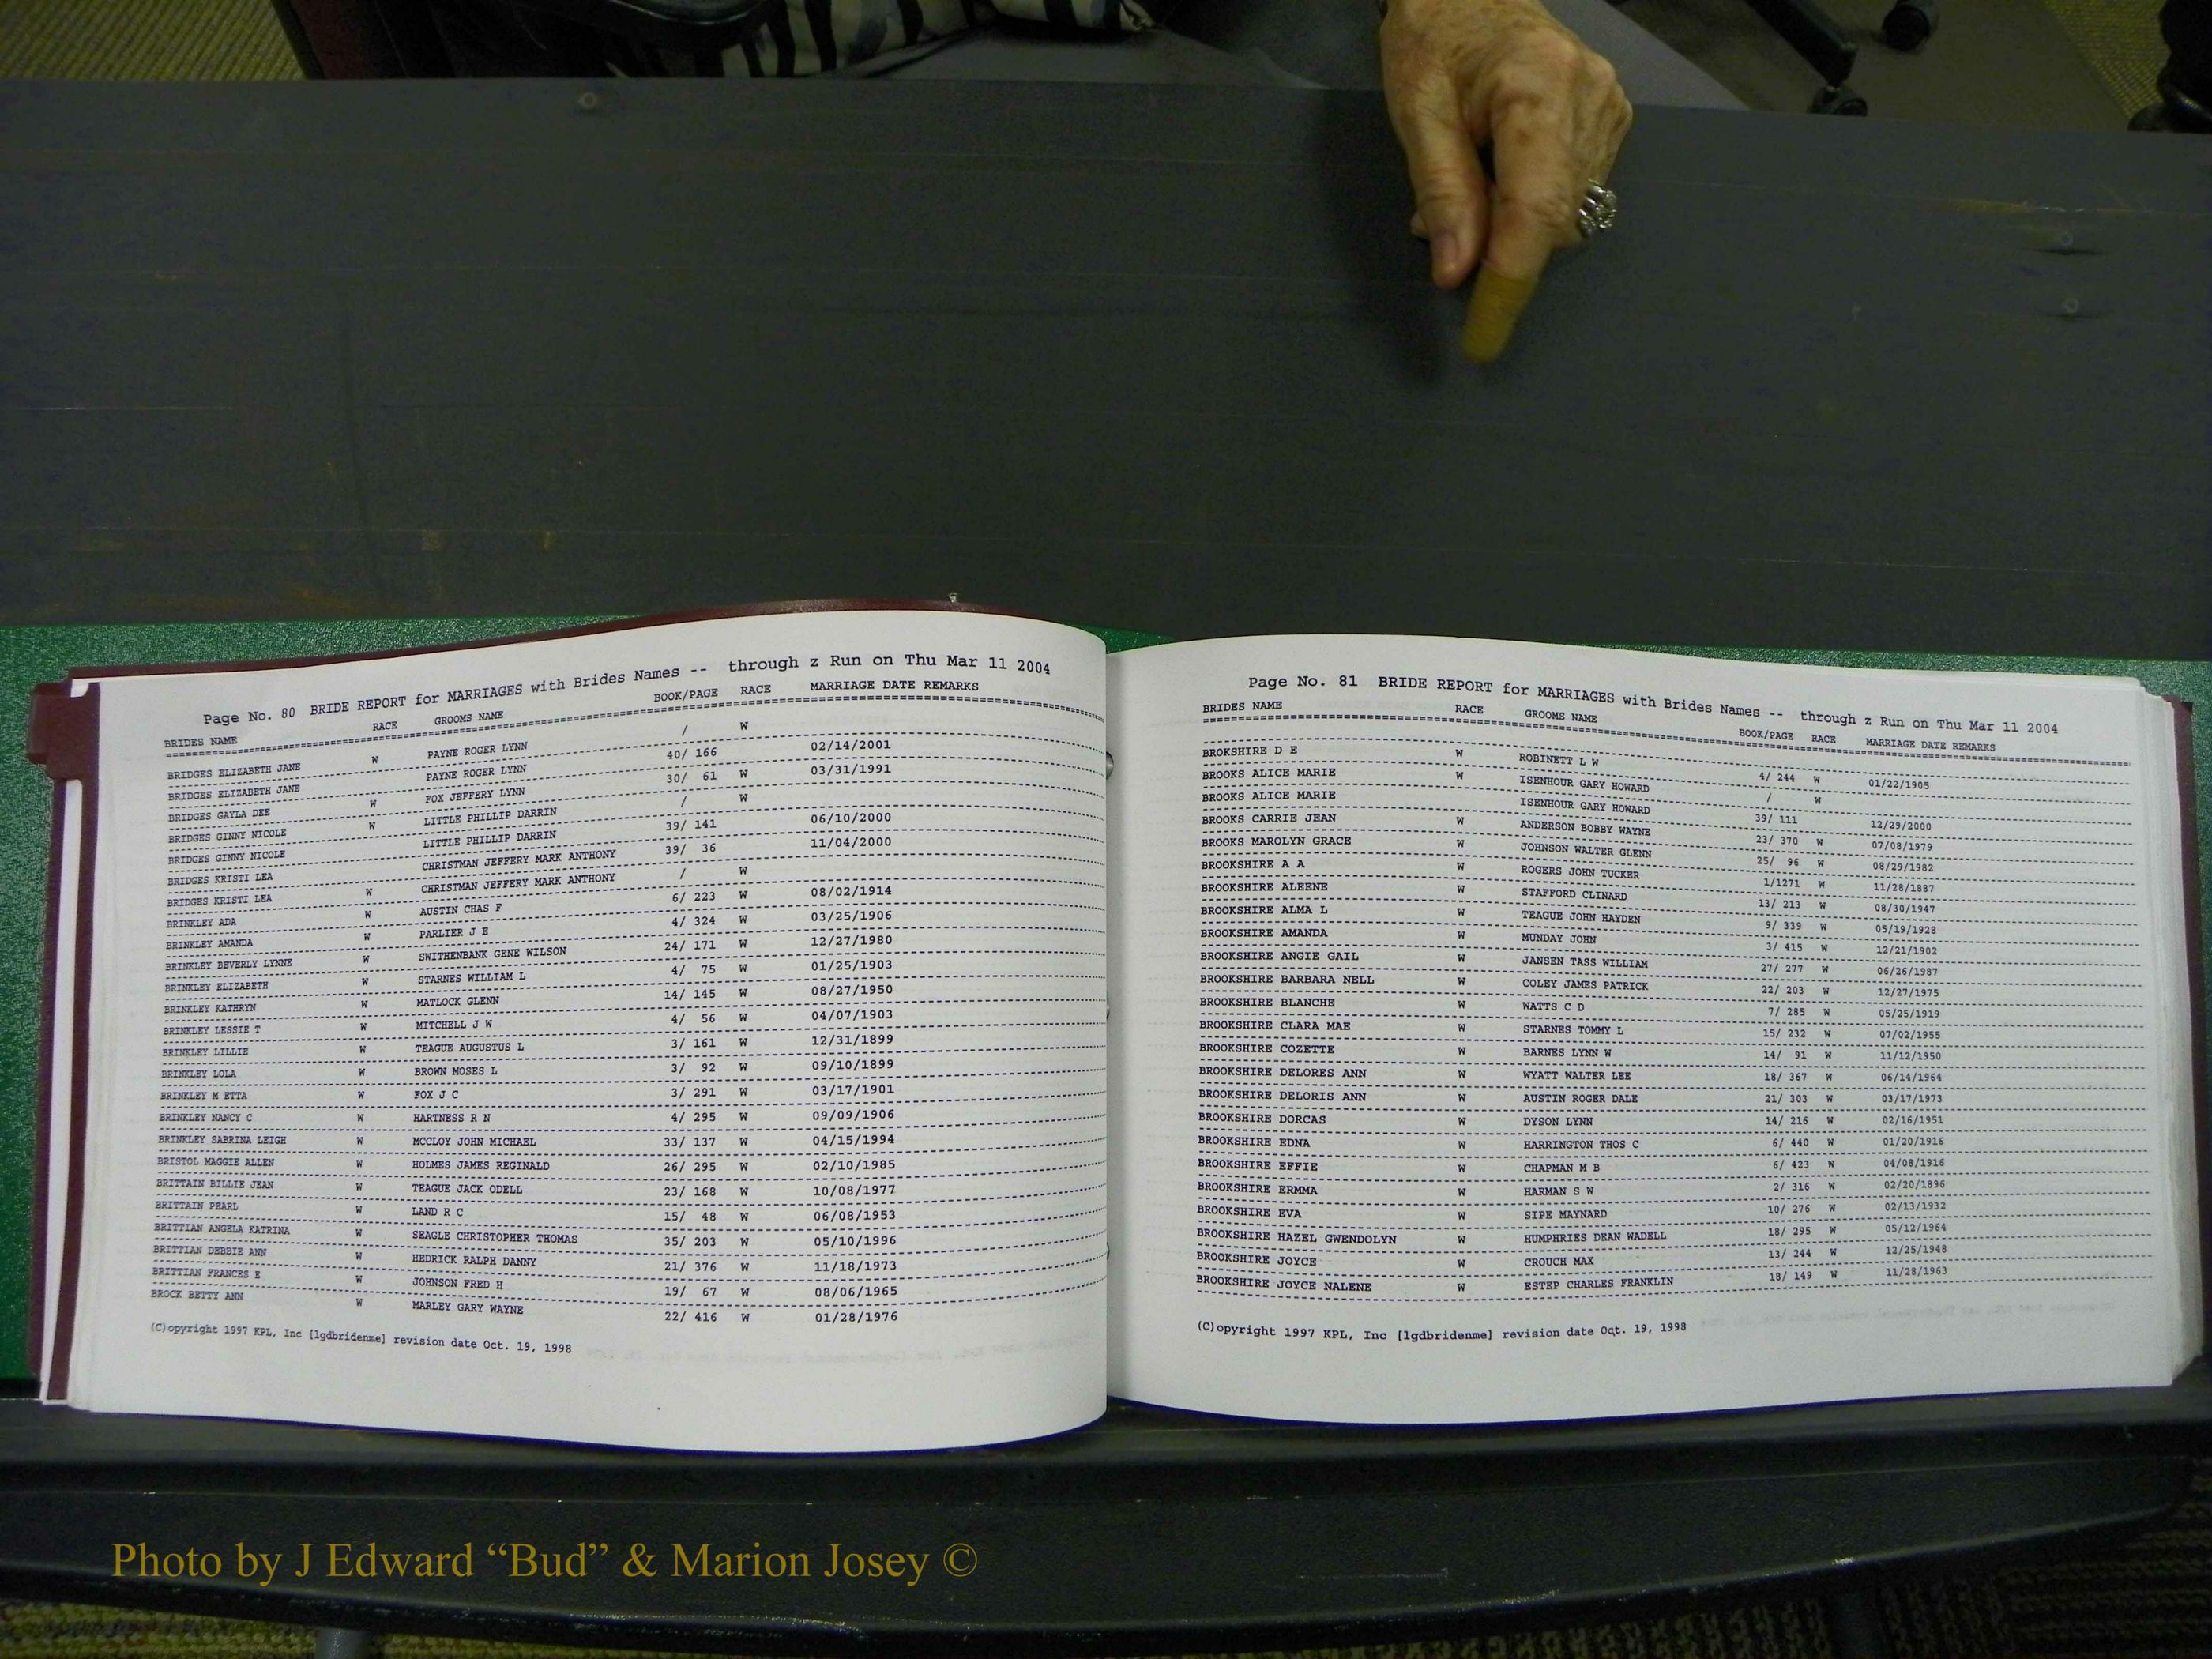 Page No. 80 BRIDE REPORT for MARRIAGES with Brides Names -- through z Run on Thu Mar 11 2004
BRIDES NAME RACE GROOMS NAME BOOK/PAGE RACE MARRIAGE DATE REMARKS
BRIDGES ELIZABETH JANE W PAYNE ROGER LYNN / W
BRIDGES ELIZABETH JANE PAYNE ROGER LYNN 40/ 166 02/14/2001
BRIDGES GAYLA DEE W FOX JEFFERY LYNN 30/ 61 W 03/31/1991
BRIDGES GINNY NICOLE W LITTLE PHILLIP DARRIN / W
BRIDGES GINNY NICOLE LITTLE PHILLIP DARRIN 39/ 141 06/10/2000
BRIDGES KRISTI LEA CHRISTMAN JEFFERY MARK ANTHONY 39/ 36 11/04/2000
BRIDGES KRISTI LEA W CHRISTMAN JEFFERY MARK ANTHONY / W
BRINKLEY ADA W AUSTIN CHAS F 6/ 223 W 08/02/1914
BRINKLEY AMANDA W PARLIER J E 4/ 324 W 03/25/1906
BRINKLEY BEVERLY LYNNE W SWITHENBANK GENE WILSON 24/ 171 W 12/27/1980
BRINKLEY ELIZABETH W STARNES WILLIAM L 4/ 75 W 01/25/1903
BRINKLEY KATHRYN W MATLOCK GLENN 14/ 145 W 08/27/1950
BRINKLEY LESSIE T W MITCHELL J W 4/ 56 W 04/07/1903
BRINKLEY LILLIE W TEAGUE AUGUSTUS L 3/ 161 W 12/31/1899
BRINKLEY LOLA W BROWN MOSES L 3/ 92 W 09/10/1899
BRINKLEY M ETTA W FOX J C 3/ 291 W 03/17/1901
BRINKLEY NANCY C W HARTNESS R N 4/ 295 W 09/09/1906
BRINKLEY SABRINA LEIGH W MCCLOY JOHN MICHAEL 33/ 137 W 04/15/1994
BRISTOL MAGGIE ALLEN W HOLMES JAMES REGINALD 26/ 295 W 02/10/1985
BRITTAIN BILLIE JEAN W TEAGUE JACK ODELL 23/ 168 W 10/08/1977
BRITTAIN PEARL W LAND R C 15/ 48 W 06/08/1953
BRITTIAN ANGELA KATRINA W SEAGLE CHRISTOPHER THOMAS 35/ 203 W 05/10/1996
BRITTIAN DEBBIE ANN W HEDRICK RALPH DANNY 21/ 376 W 11/18/1973
BRITTIAN FRANCES E W JOHNSON FRED H 19/ 67 W 08/06/1965
BROCK BETTY ANN W MARLEY GARY WAYNE 22/ 416 W 01/28/1976
(C)opyright 1997 KPL, Inc [lgdbridenme] revision date Oct. 19, 1998
Page No. 81 BRIDE REPORT for MARRIAGES with Brides Names -- through z Run on Thu Mar 11 2004
BRIDES NAME RACE GROOMS NAME BOOK/PAGE RACE MARRIAGE DATE REMARKS
BROKSHIRE D E W ROBINETT L W 4/ 244 W 01/22/1905
BROOKS ALICE MARIE W ISENHOUR GARY HOWARD / W
BROOKS ALICE MARIE ISENHOUR GARY HOWARD 39/ 111 12/29/2000
BROOKS CARRIE JEAN W ANDERSON BOBBY WAYNE 23/ 370 W 07/08/1979
BROOKS MAROLYN GRACE W JOHNSON WALTER GLENN 25/ 96 W 08/29/1982
BROOKSHIRE A A W ROGERS JOHN TUCKER 1/1271 W 11/28/1887
BROOKSHIRE ALEENE W STAFFORD CLINARD 13/ 213 W 08/30/1947
BROOKSHIRE ALMA L W TEAGUE JOHN HAYDEN 9/ 339 W 05/19/1928
BROOKSHIRE AMANDA W MUNDAY JOHN 3/ 415 W 12/21/1902
BROOKSHIRE ANGIE GAIL W JANSEN TASS WILLIAM 27/ 277 W 06/26/1987
BROOKSHIRE BARBARA NELL W COLEY JAMES PATRICK 22/ 203 W 12/27/1975
BROOKSHIRE BLANCHE W WATTS C D 7/ 285 W 05/25/1919
BROOKSHIRE CLARA MAE W STARNES TOMMY L 15/ 232 W 07/02/1955
BROOKSHIRE COZETTE W BARNES LYNN W 14/ 91 W 11/12/1950
BROOKSHIRE DELORES ANN W WYATT WALTER LEE 18/ 367 W 06/14/1964
BROOKSHIRE DELORIS ANN W AUSTIN ROGER DALE 21/ 303 W 03/17/1973
BROOKSHIRE DORCAS W DYSON LYNN 14/ 216 W 02/16/1951
BROOKSHIRE EDNA W HARRINGTON THOS C 6/ 440 W 01/20/1916
BROOKSHIRE EFFIE W CHAPMAN M B 6/ 423 W 04/08/1916
BROOKSHIRE ERMMA W HARMAN S W 2/ 316 W 02/20/1896
BROOKSHIRE EVA W SIPE MAYNARD 10/ 276 W 02/13/1932
BROOKSHIRE HAZEL GWENDOLYN W HUMPHRIES DEAN WADELL 18/ 295 W 05/12/1964
BROOKSHIRE JOYCE W CROUCH MAX 13/ 244 W 12/25/1948
BROOKSHIRE JOYCE NALENE W ESTEP CHARLES FRANKLIN 18/ 149 W 11/28/1963
(C)opyright 1997 KPL, Inc [lgdbridenme] revision date Oct. 19, 1998
Photo by J Edward “Bud” & Marion Josey ©